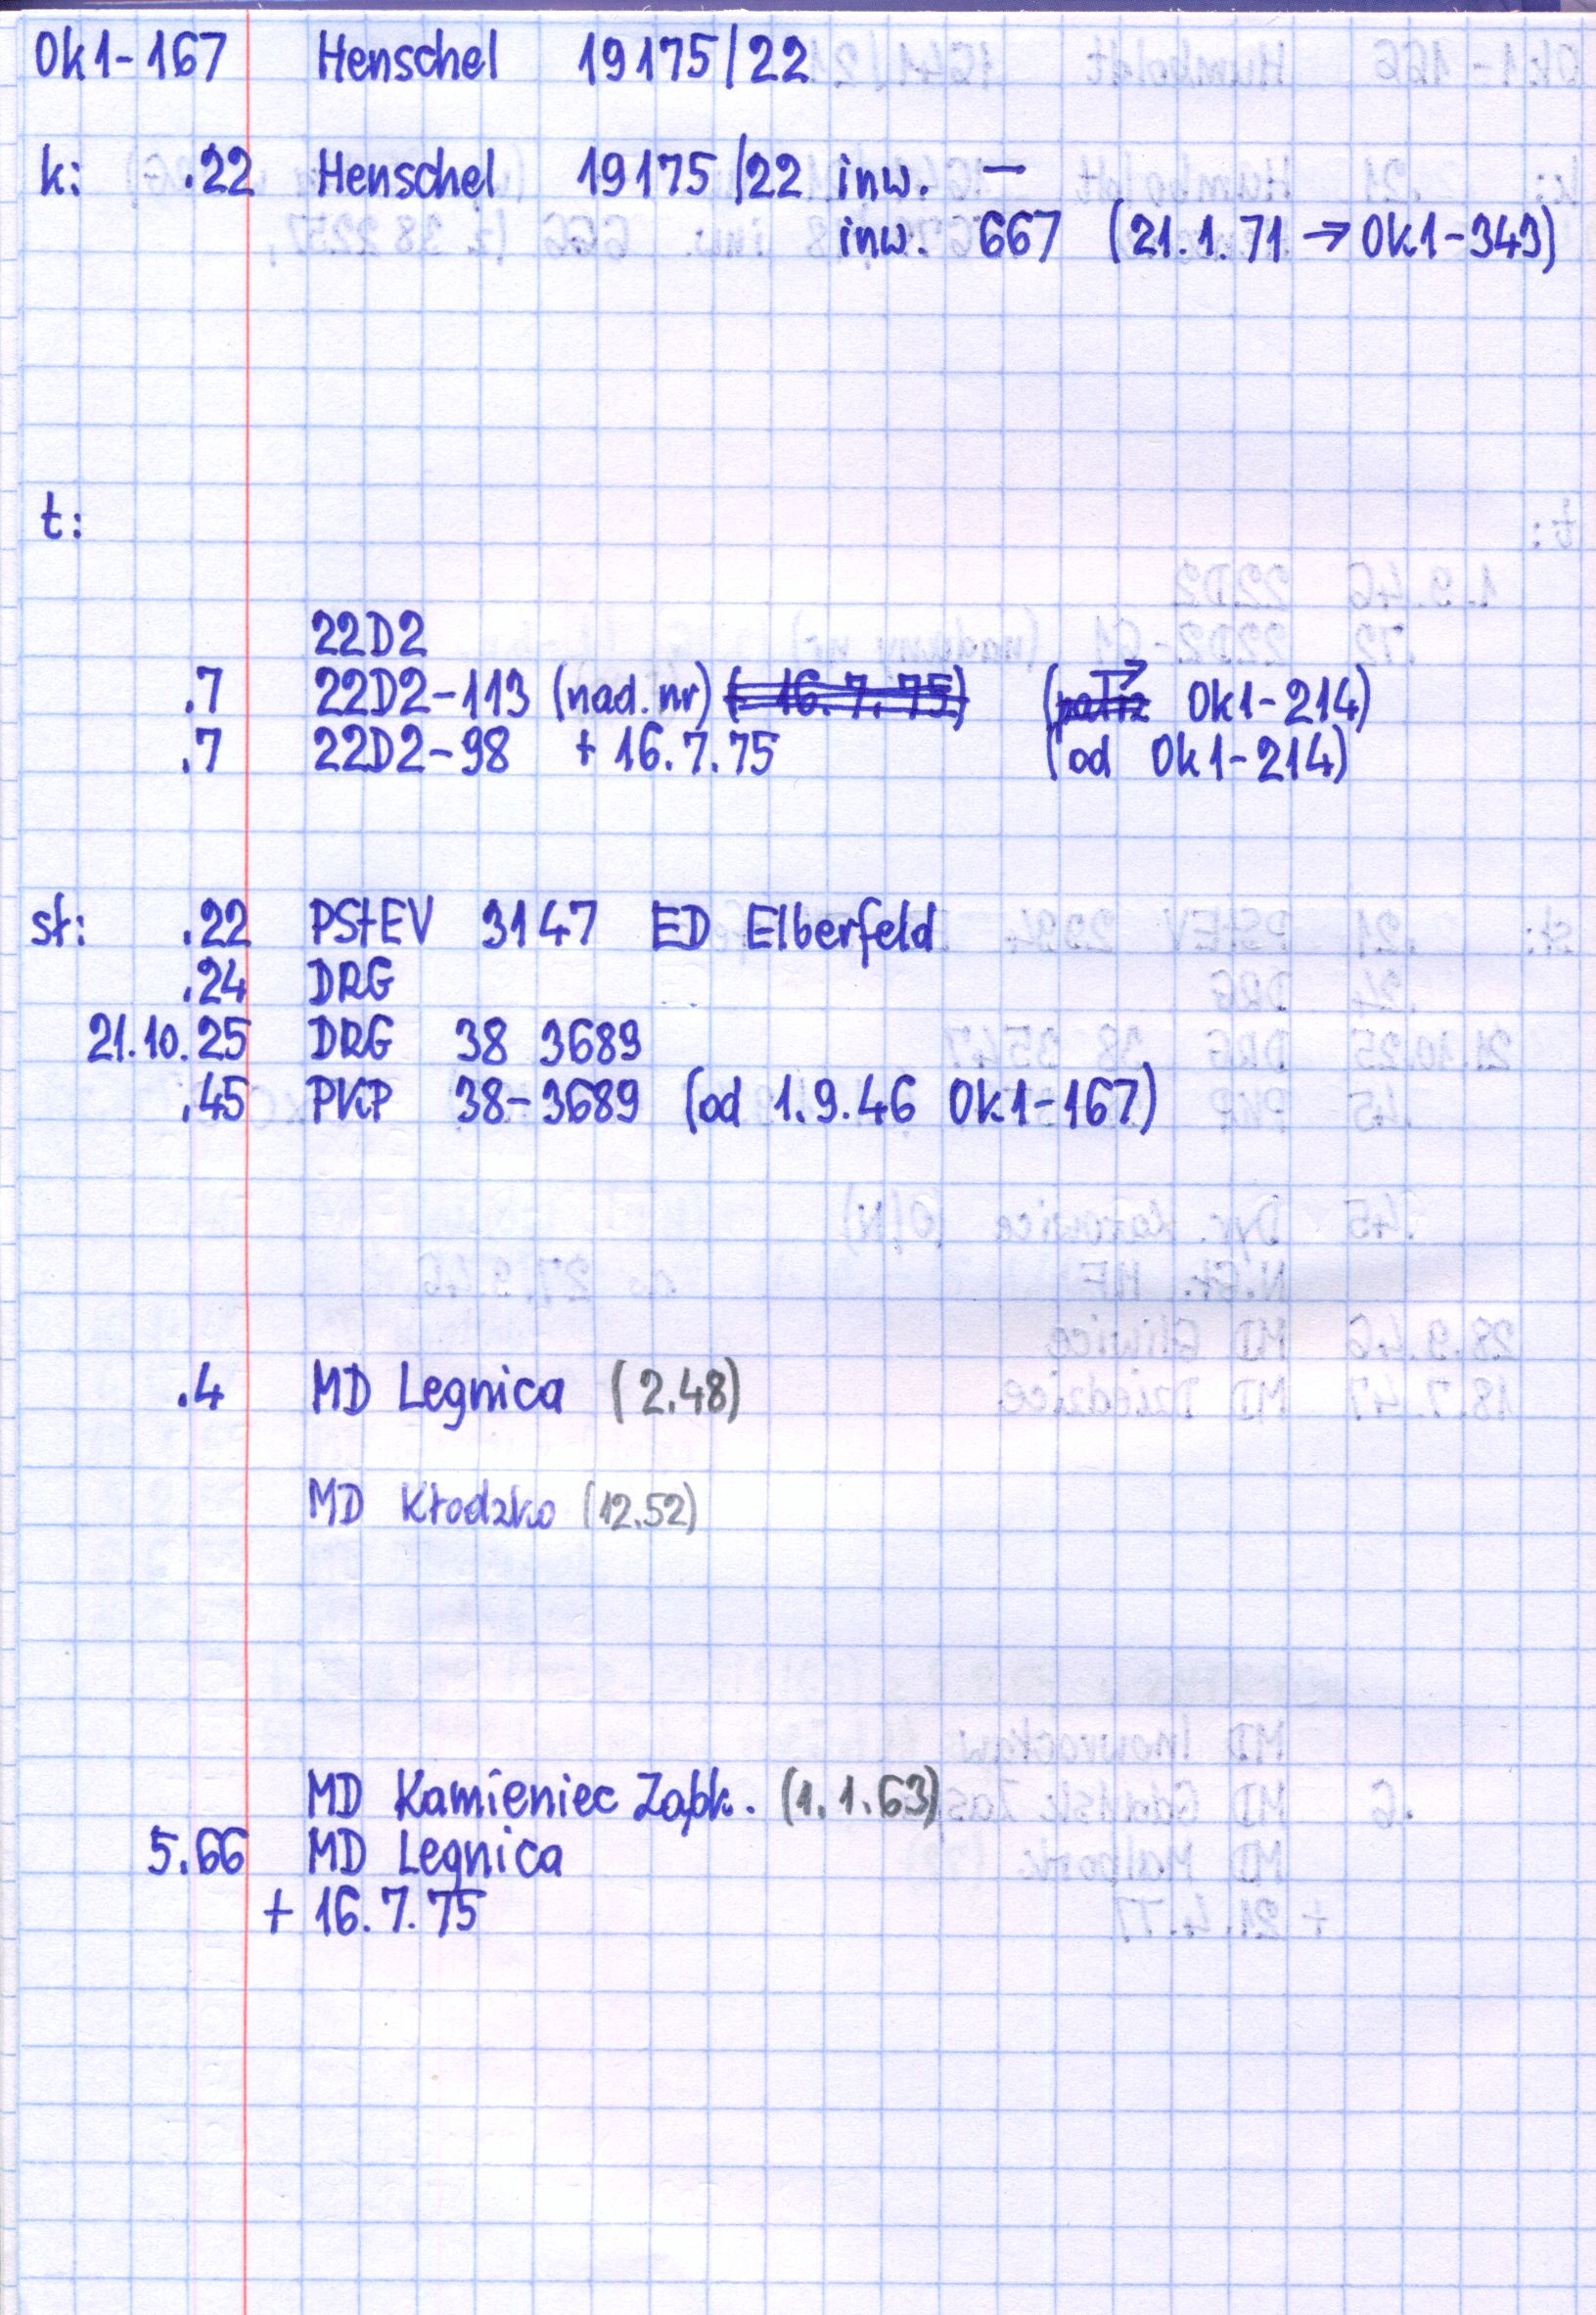 Ok1-167 Henschel 19175/22
k: .22 Henschel 19175/22 inw. —
inw. 667 (21.1.71 → Ok1-343)
t:
22D2
.7 22D2-113 (nad. nr) (+ 16.7.75) (→ Ok1-214)
.7 22D2-98 + 16.7.75 (od Ok1-214)
st: .22 PStEV 3147 ED Elberfeld
.24 DRG
21.10.25 DRG 38 3689
.45 PKP 38-3689 (od 1.9.46 Ok1-167)
.4 MD Legnica (2.48)
MD Kłodzko (12.52)
MD Kamieniec Ząbk. (1.1.63)
5.66 MD Legnica
+ 16.7.75